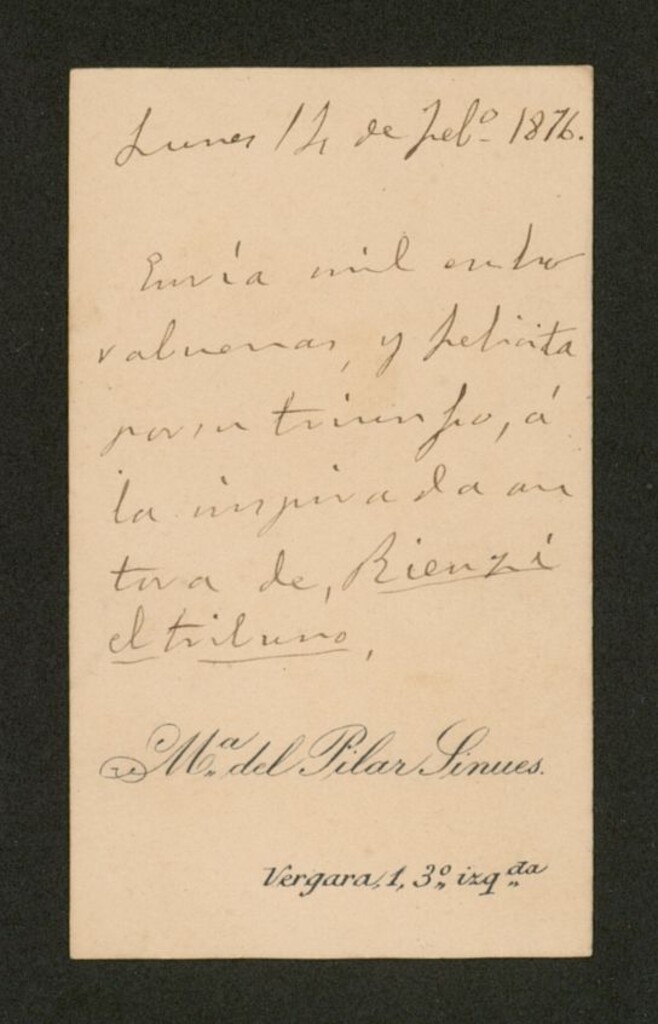 Lunes 14 de feb.o 1876.
Envía mil enho
rabuenas, y felicita
por su triunfo, á
la inspirada au
tora de, Rienzi
el tribuno,
M.a del Pilar Sinues.
Vergara, 1, 3.o izq.da